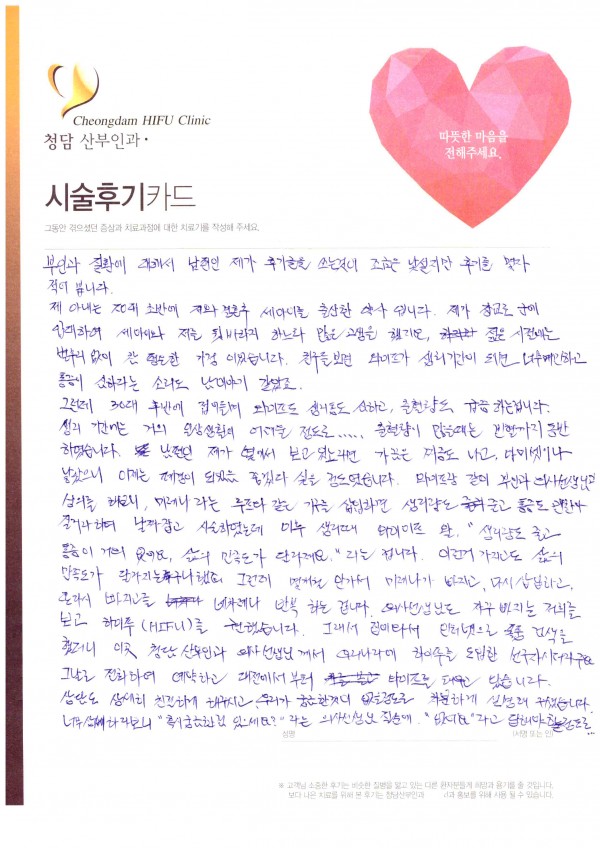 Cheongdam HIFU Clinic
청담 산부인과
따뜻한 마음을
전해주세요.
시술후기카드
그동안 겪으셨던 증상과 치료과정에 대한 치료기를 작성해 주세요.
부인과 질환에 대해서 남편인 제가 후기글을 쓰는것이 조금은 낯설지만 후기를 몇자
적어 봅니다.
제 아내는 20대 초반에 저와 결혼후 세아이를 출산한 여자 입니다. 제가 장교로 군에
입대하여 세아이와 저를 뒷바라지 하느라 많은 고생을 했지만, 젊은 시절에는
별무리 없이 잘 생활한 가정 이었습니다. 친구들보면 와이프가 생리기간이 되면 너무예민하고
통증이 심하다는 소리도 남얘기 같았죠.
그런데 30대 후반에 접어들며 와이프도 생리통도 심하고, 출혈량도 급증 하는겁니다.
생리 기간에는 거의 일상생활이 어려울 정도로..... 출혈량이 많을때는 빈혈까지 동반
하였습니다. 남편인 제가 옆에서 보고 있노라면 가끔은 겁도 나고, 아이셋이나
낳았으니 이제는 폐경이 되었음 좋겠다 싶을 정도였습니다. 와이프랑 같이 부인과 의사선생님과
상의를 해보니, 미레나 라는 루프와 같은 기구를 삽입하면 생리량도 줄고 통증도 완화
된다하여 날짜잡고 시술하였는데 이후 생리때 와이프 왈, "생리량도 줄고
통증이 거의 없어요, 삶의 만족도가 달라져요." 라는 겁니다. 이런걸 가지고도 삶의
만족도가 달라지는구나 했죠. 그런데 몇개월 안가서 미레나가 빠지고, 다시 삽입하고,
온라서 빠지고를 네차례나 반복 하는 겁니다. 의사선생님도 자꾸 빠지는 저희를
보고 하이푸 (HIFU)를 권했습니다. 그래서 집에 와서 인터넷으로 검색을
했더니 이곳 청담 산부인과 의사선생님 께서 우리나라에 하이푸를 도입한 선구자시더라구요
그날로 전화하여 예약하고 대전에서부터 와이프를 태우고 왔습니다.
상담도 상세히 친절하게 해주시고, 우리가 궁금한것이 없을정도로 차분하게 설명해 주셨습니다.
너무상세하다보니 "혹시궁금한점 있으세요?" 라는 의사선생님 질문에, "없어요"라고 답해야 할 정도로...
성명
(서명 또는 인)
※ 고객님 소중한 후기는 비슷한 질병을 앓고 있는 다른 환자분들께 희망과 용기를 줄 것입니다.
보다 나은 치료를 위해 본 후기는 청담산부인과 과 홍보를 위해 사용 될 수 있습니다.